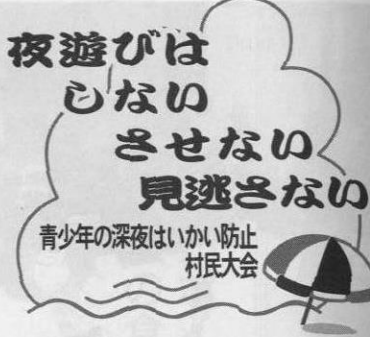 夜遊びは
しない
させない
見逃さない
青少年の深夜はいかい防止
村民大会